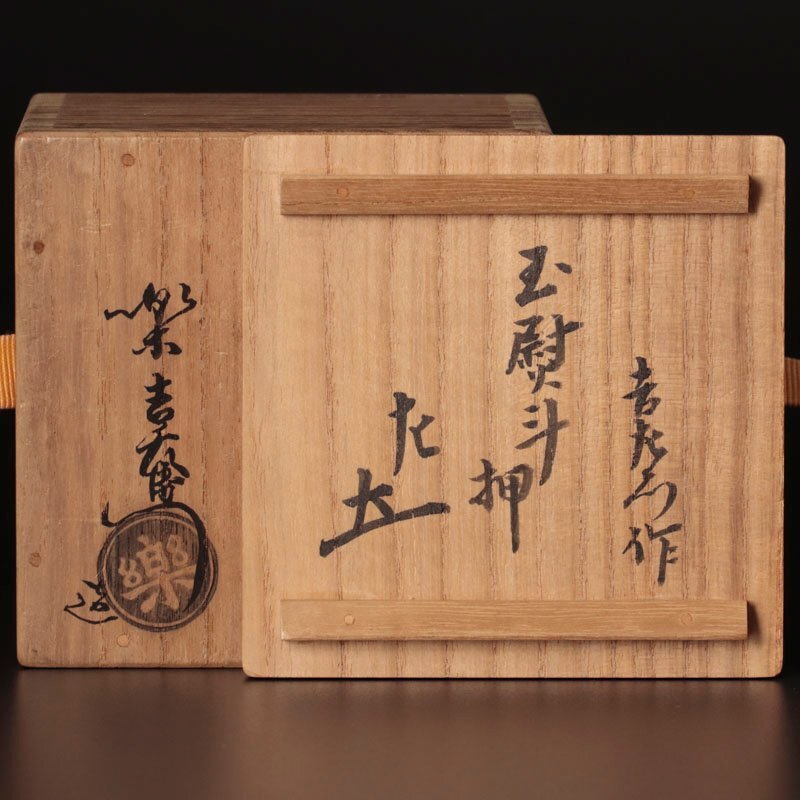 吉左衛門作
玉熨斗押
左
樂吉左衛門
造
樂